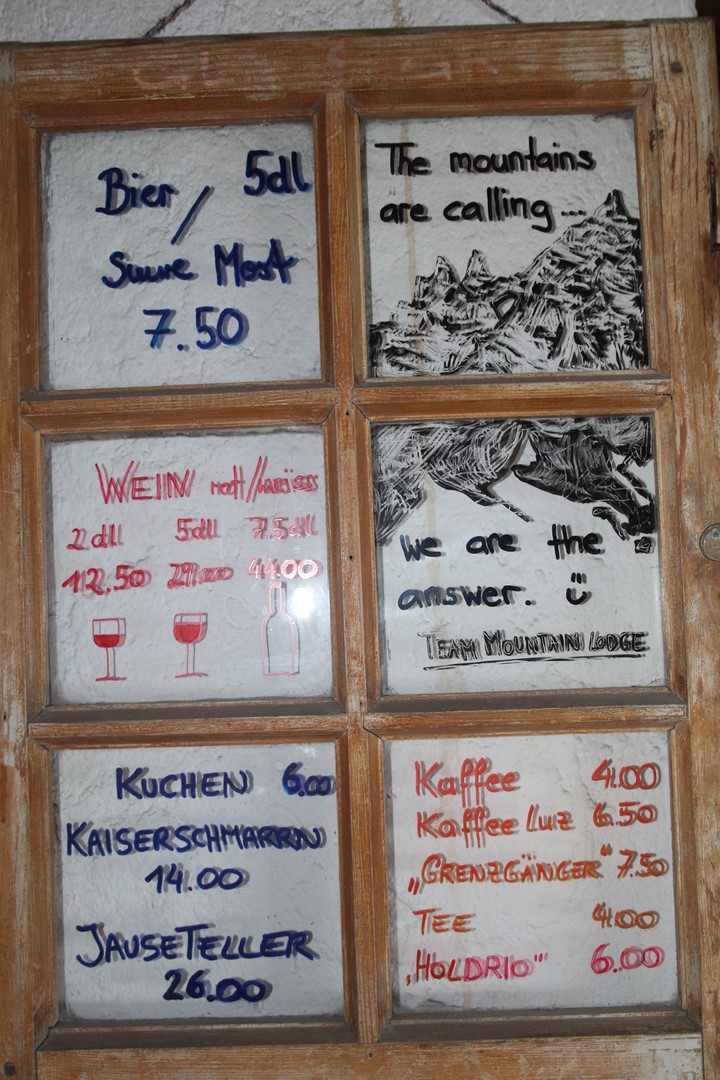 Bier / 5dl
Suure Most
7.50
The mountains
are calling...
WEIN rot/weiss
2dl 5dl 7.5dl
12.50 29.00 44.00
we are the
answer. :)
TEAM MOUNTAIN LODGE
KUCHEN 6.00
KAISERSCHMARRN
14.00
JAUSETELLER
26.00
Kaffee 4.00
Kaffee Luz 6.50
„GRENZGÄNGER“ 7.50
TEE 4.00
„HOLDRIO“ 6.00